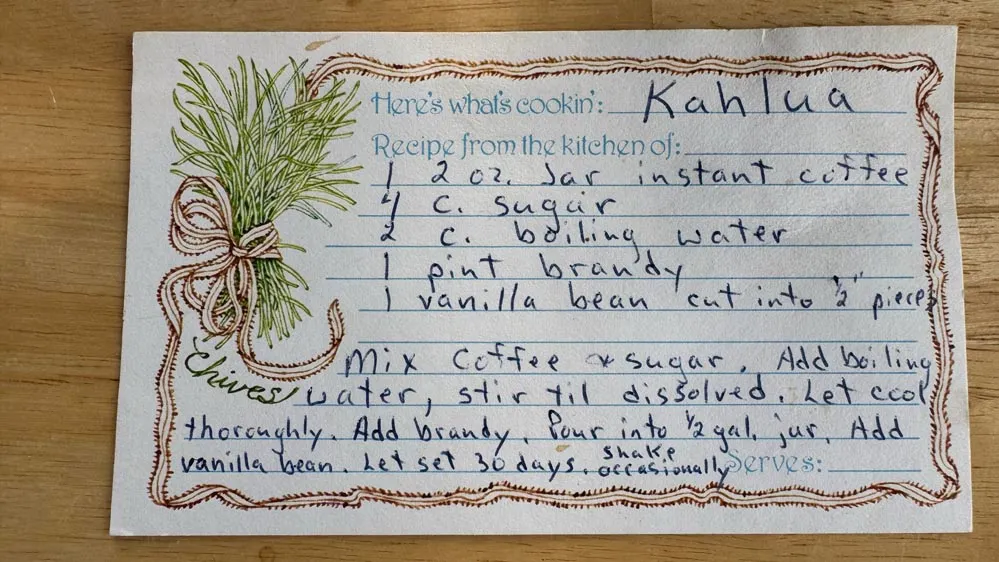 Here's what's cookin': Kahlua
Recipe from the kitchen of:
1 2 oz. Jar instant coffee
4 c. sugar
2 c. boiling water
1 pint brandy
1 vanilla bean cut into ½" pieces
Mix Coffee & sugar. Add boiling
Chives water, stir til dissolved. Let cool
thoroughly. Add brandy. Pour into ½ gal. jar. Add
vanilla bean. Let set 30 days. shake occasionally Serves: